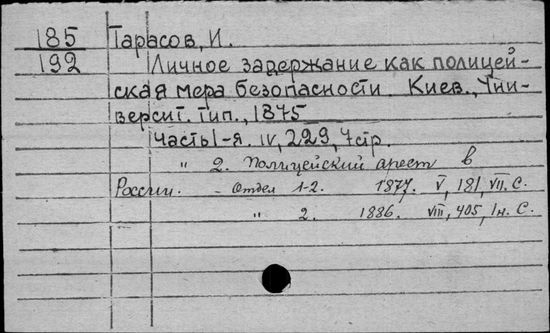 185 Тарасов, И.
192 Личное задержание как полицей-
ская мера безопасности. Киев., Уни-
версит. тип., 1875
Часть 1-я. IV, 229, 7 стр.
" 2. Полицейский арест в
России. - Отдел 1-2. 1877. V, 181, VII. С.
" 2. 1886. VIII, 405, 1н. С.